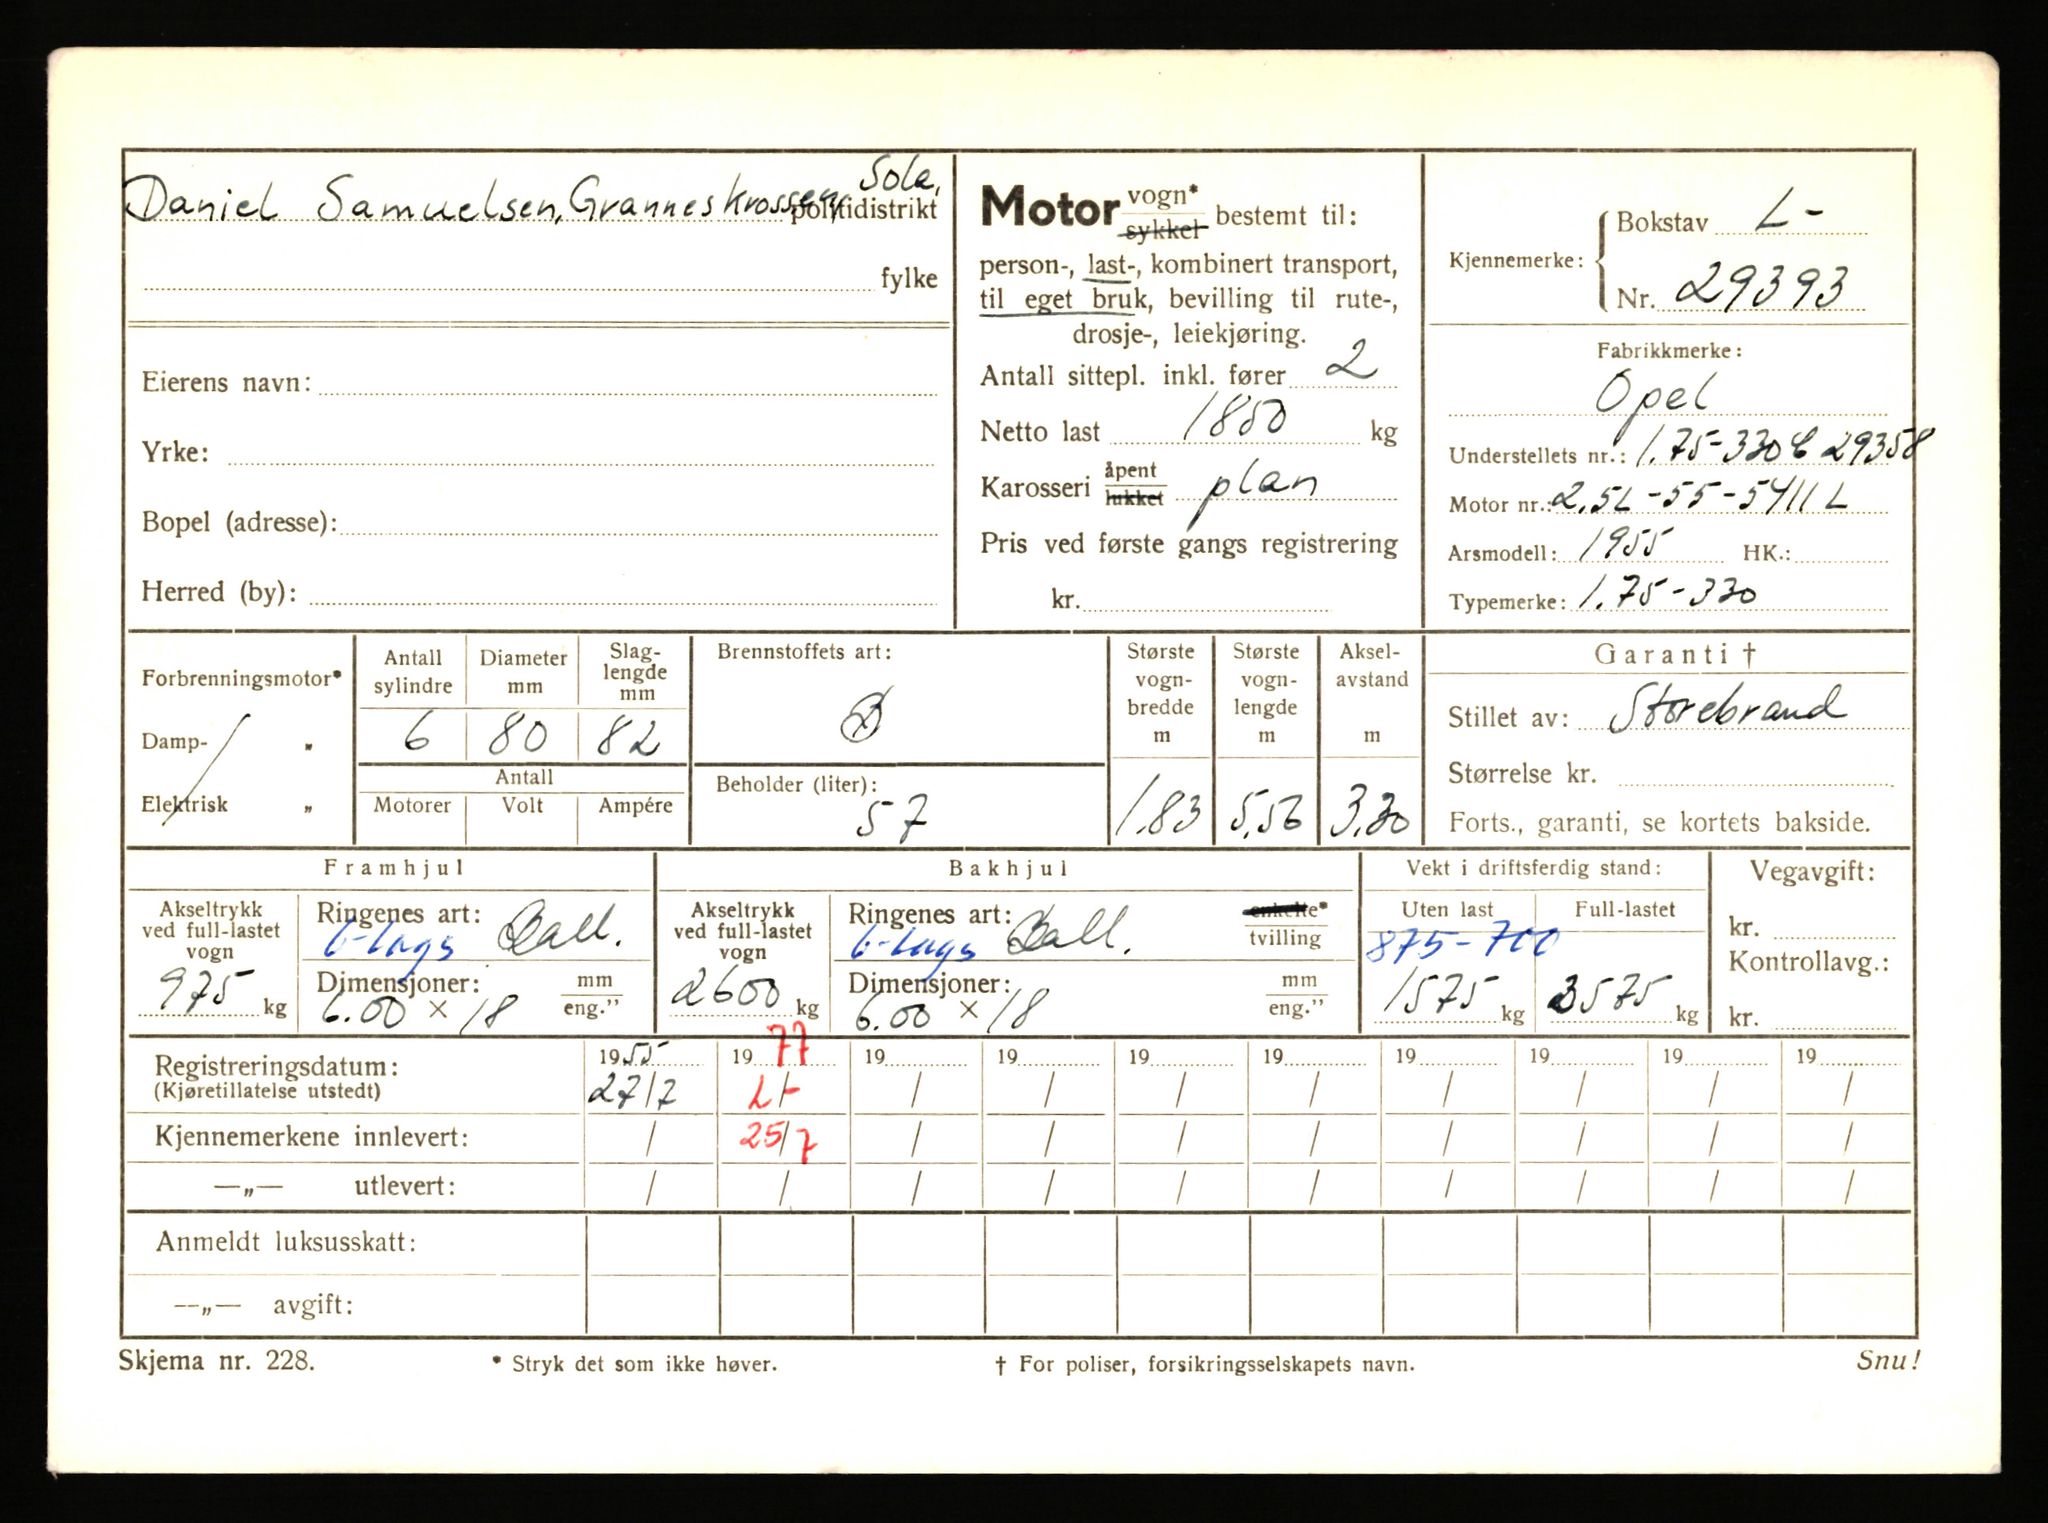 Daniel Samuelsen, Granneskrossen, Sola,
politidistrikt
fylke
Eierens navn:
Yrke:
Bopel (adresse):
Herred (by):
Motor vogn* sykkel bestemt til:
person-, last-, kombinert transport,
til eget bruk, bevilling til rute-,
drosje-, leiekjøring.
Antall sittepl. inkl. fører 2
Netto last 1850 kg
Karosseri åpent lukket plan
Pris ved første gangs registrering
kr.
Kjennemerke: Bokstav L-
Nr. 29393
Fabrikkmerke:
Opel
Understellets nr.: 1.75-330 29358
Motor nr.: 2.5L-55-5411L
Arsmodell: 1955 HK.:
Typemerke: 1.75-330
Forbrenningsmotor*
Damp- „
Elektrisk „
Antall sylindre 6
Diameter mm 80
Slaglengde mm 82
Antall
Motorer Volt Ampére
Brennstoffets art:
B
Beholder (liter):
57
Største vogn-bredde m 1.83
Største vogn-lengde m 5.56
Aksel-avstand m 3.30
Garanti †
Stillet av: Storebrand
Størrelse kr.
Forts., garanti, se kortets bakside.
Framhjul
Akseltrykk ved full-lastet vogn
975 kg
Ringenes art: 6-lags Ball.
Dimensjoner: mm eng."
6.00 x 18
Bakhjul
Akseltrykk ved full-lastet vogn
2600 kg
Ringenes art: 6-lags Ball. enkelte* tvilling
Dimensjoner: mm eng."
6.00 x 18
Vekt i driftsferdig stand:
Uten last Full-lastet
875-700
1575 kg 3575 kg
Vegavgift:
kr.
Kontrollavg.:
kr.
Registreringsdatum: 1955 1977 19 19 19 19 19 19 19 19
(Kjøretillatelse utstedt) 27/7 L/- / / / / / / / /
Kjennemerkene innlevert: / 25/7 / / / / / / / /
—„— utlevert: / / / / / / / / / /
Anmeldt luksusskatt:
—„— avgift:
Skjema nr. 228. * Stryk det som ikke høver. † For poliser, forsikringsselskapets navn. Snu!